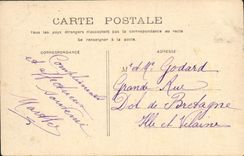 CARTE POSTALE
Tous les pays étrangers n'acceptent pas la correspondance au recto
Se renseigner à la poste.
CORRESPONDANCE
ADRESSE
Compliments
et affectueux
souvenirs
Marthe
Godard
Grande Rue
Dol de Bretagne
Ille et Vilaine